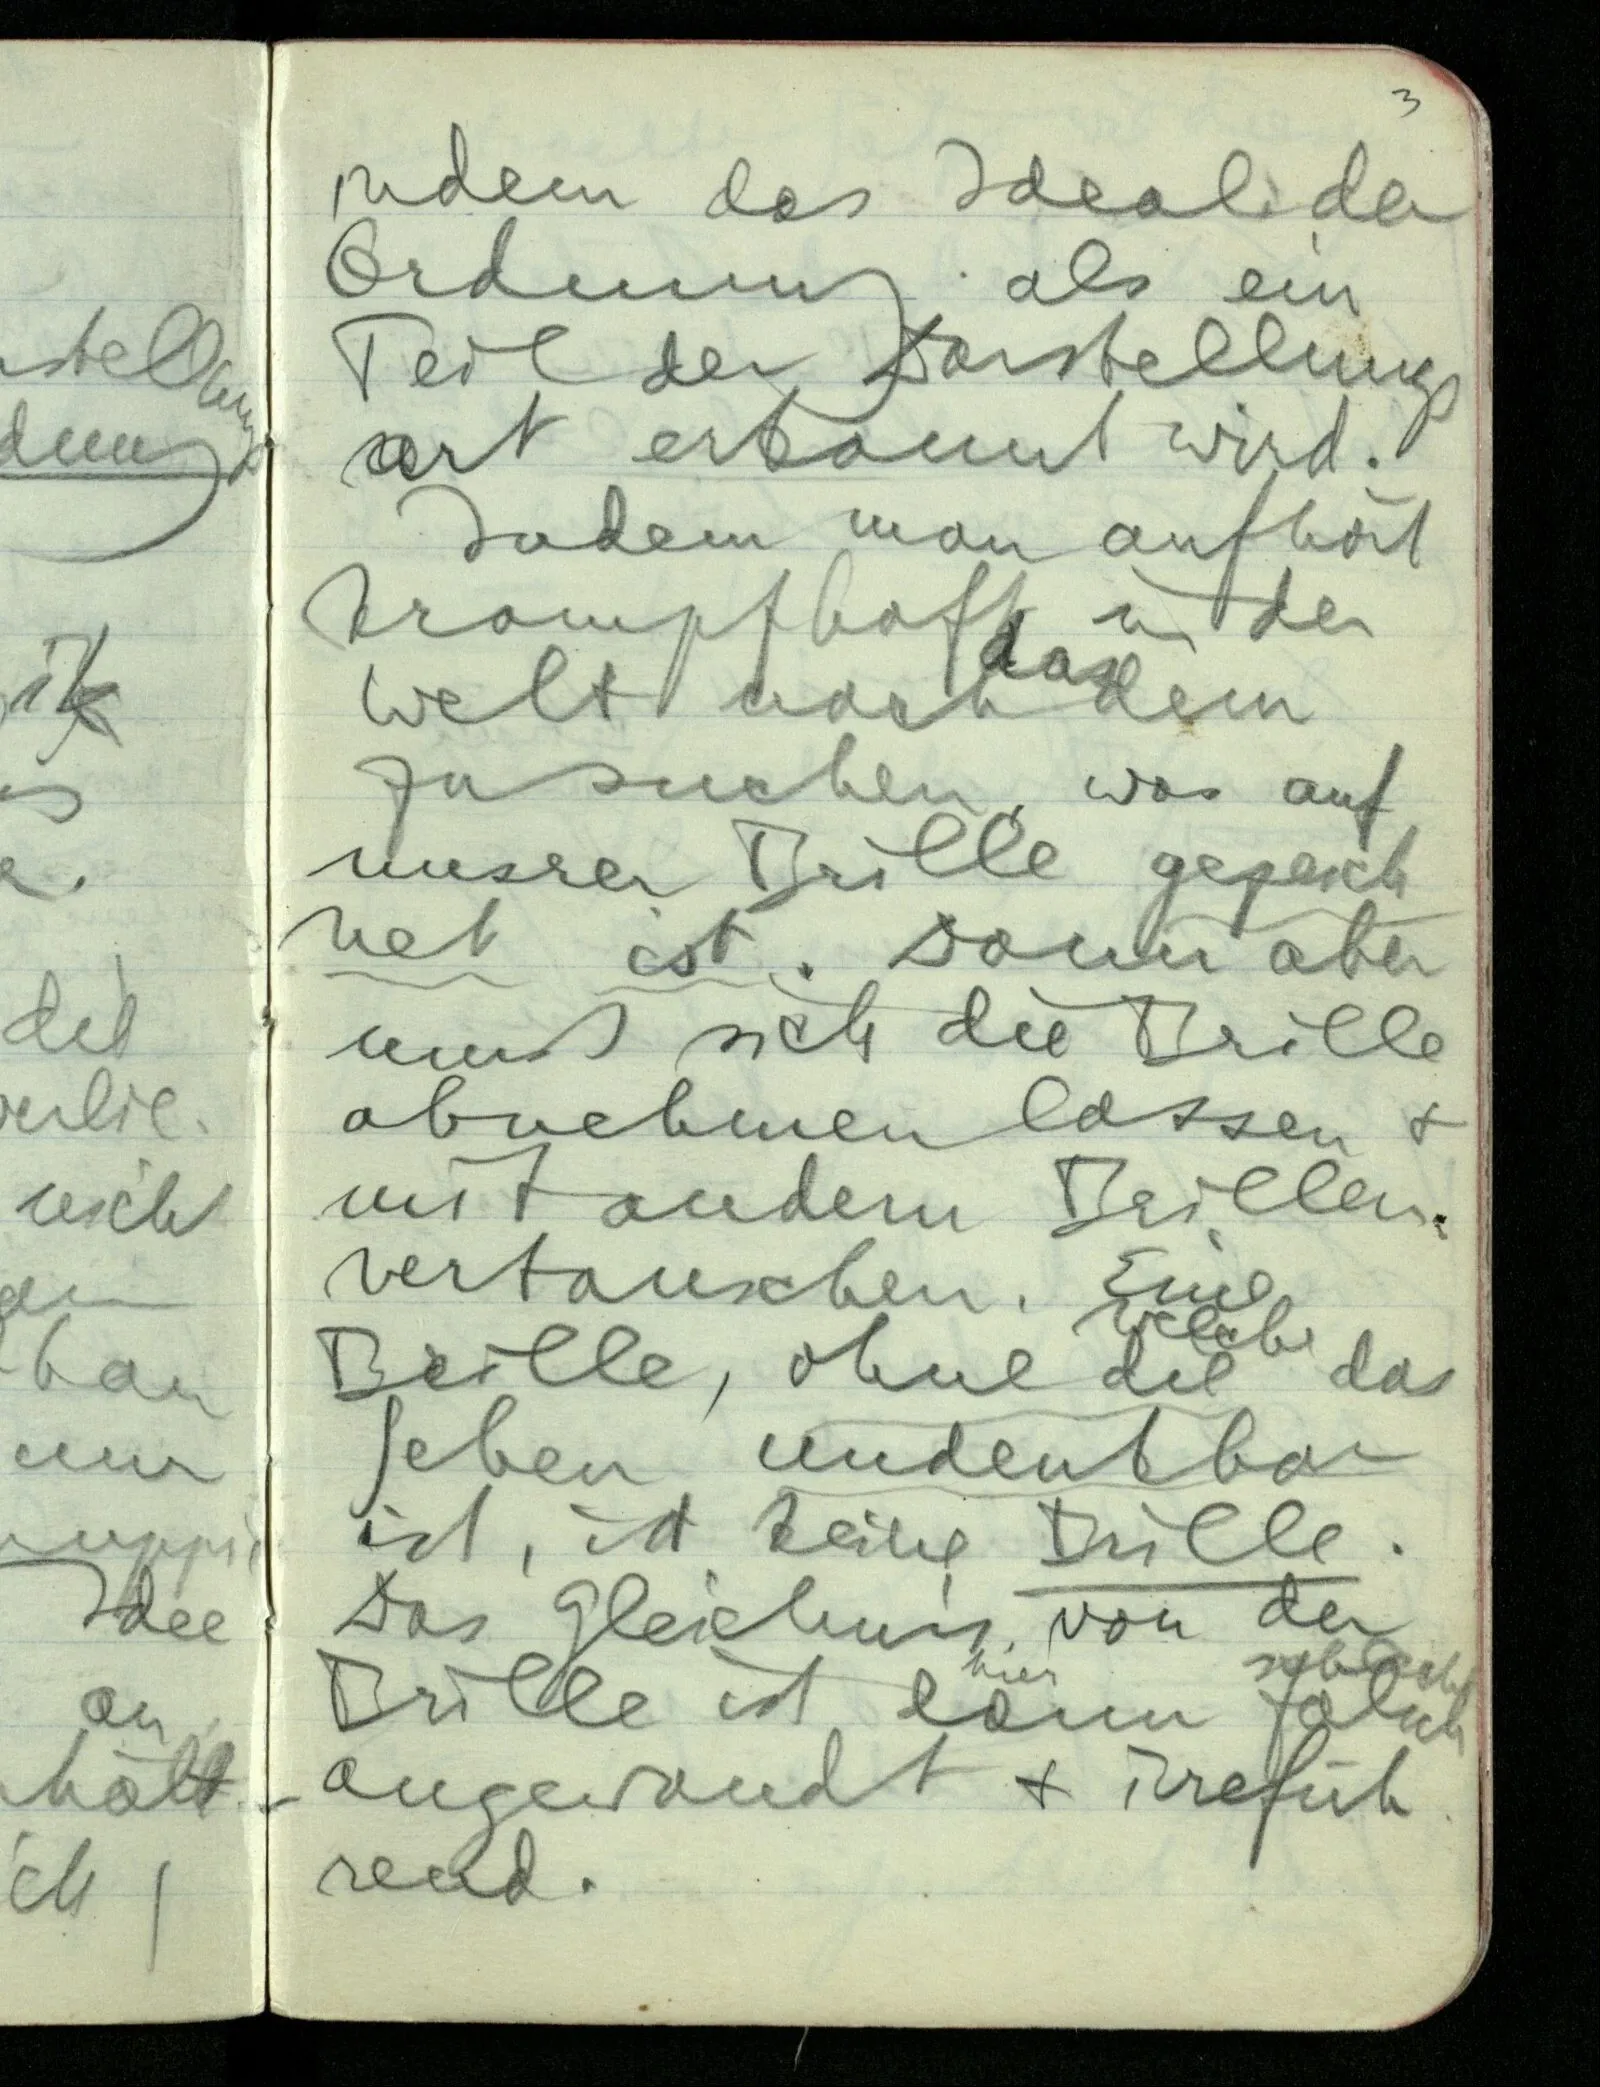 3
indem das Ideal der
Ordnung als ein
Teil der Darstellungs
art erkannt wird.
Indem man aufhört
krampfhaft in der
das
Welt nach dem
zu suchen, was auf
unsrer Brille gezeich
net ist. Dann aber
muß sich die Brille
abnehmen lassen +
mit andern Brillen
vertauschen. Eine
welche
Brille, ohne die das
Sehen undenkbar
ist, ist keine Brille.
Das Gleichnis von der
hier schlecht
Brille ist dann falsch
angewandt + irrefüh
rend.
stellung
dung
ik
det
verlie.
nich
bau
nur
Idee
an
hält
ich